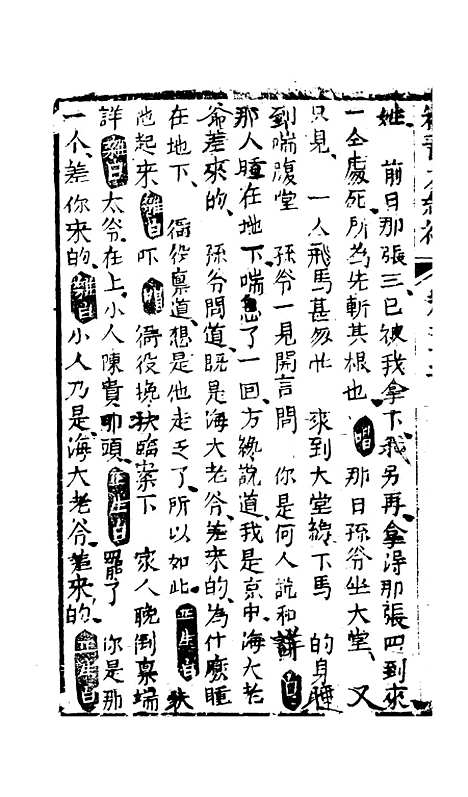 姓　前日那張三已被我拿下我另再拿得那張四到來
一全處死所為先斬其根也　唱　那日孫爷坐大堂　又
只見　一人飛馬甚匆忙　來到大堂總下馬　的身睡
到喘腹堂　孫爷一見開言問　你是何人說和詳　白
那人睡在地下喘息了一回方總說道我是京中海大老
爺差來的　孫爷問道既是海大老爷差來的為什麼睡
在地下　衙役禀道想是他走乏了所以如此　正生白　扶
他起來　雜白　吓　唱　衙役挽扶臨案下　家人晚倒禀端
詳　雜白　太爷在上小人陳貴叩頭　正生白　罷了　你是那
一个差你來的　雜白　小人乃是海大老爷差來的　正生白